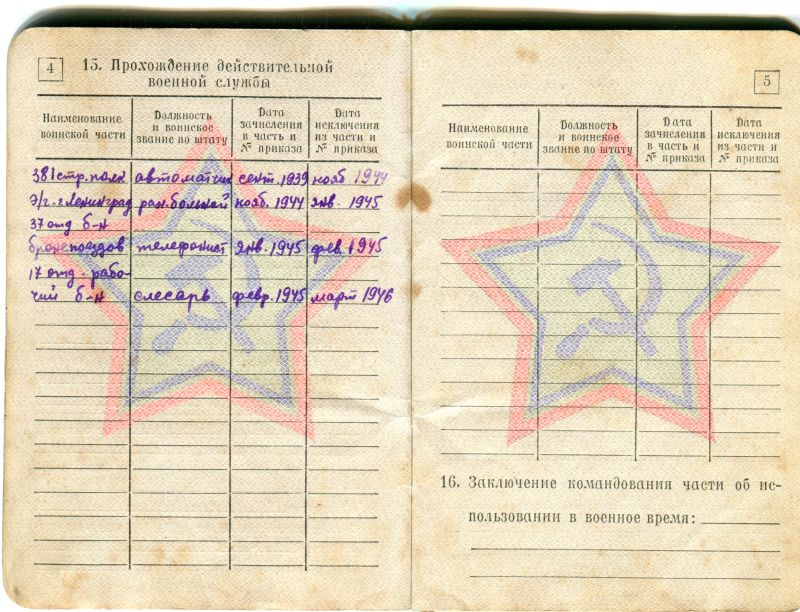 4
15. Прохождение действительной
военной службы
Наименование
воинской части
Должность
и воинское
звание по штату
Дата
зачисления
в часть и
№ приказа
Дата
исключения
из части и
№ приказа
381 стр. полк автоматчик сент. 1939 нояб. 1944
Э/г. г. Ленинград ран. больной нояб. 1944 янв. 1945
37 отд б-н
бронепоездов телефонист янв. 1945 фев. 1945
17 отд. рабо-
чий б-н слесарь февр. 1945 март 1946
5
Наименование
воинской части
Должность
и воинское
звание по штату
Дата
зачисления
в часть и
№ приказа
Дата
исключения
из части и
№ приказа
16. Заключение командования части об ис-
пользовании в военное время: